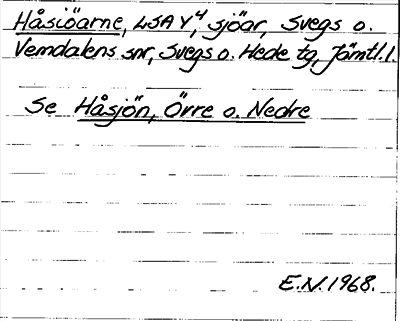 Håsjöarne, LSA Y4, sjöar, Svegs o.
Vemdalens snr, Svegs o. Hede tg, Jämtl. l.
Se Håsjön, Övre o. Nedre
E.N. 1968.